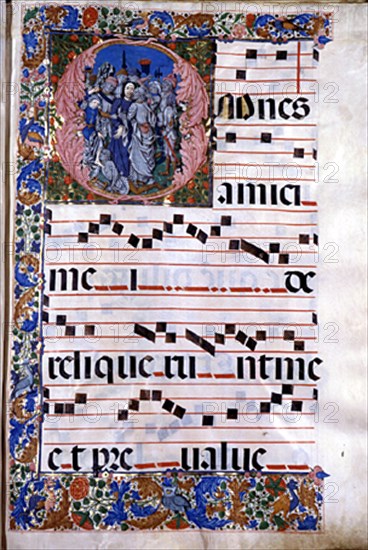 Omnes
amici
me i de
relique ru nt me
et pre value